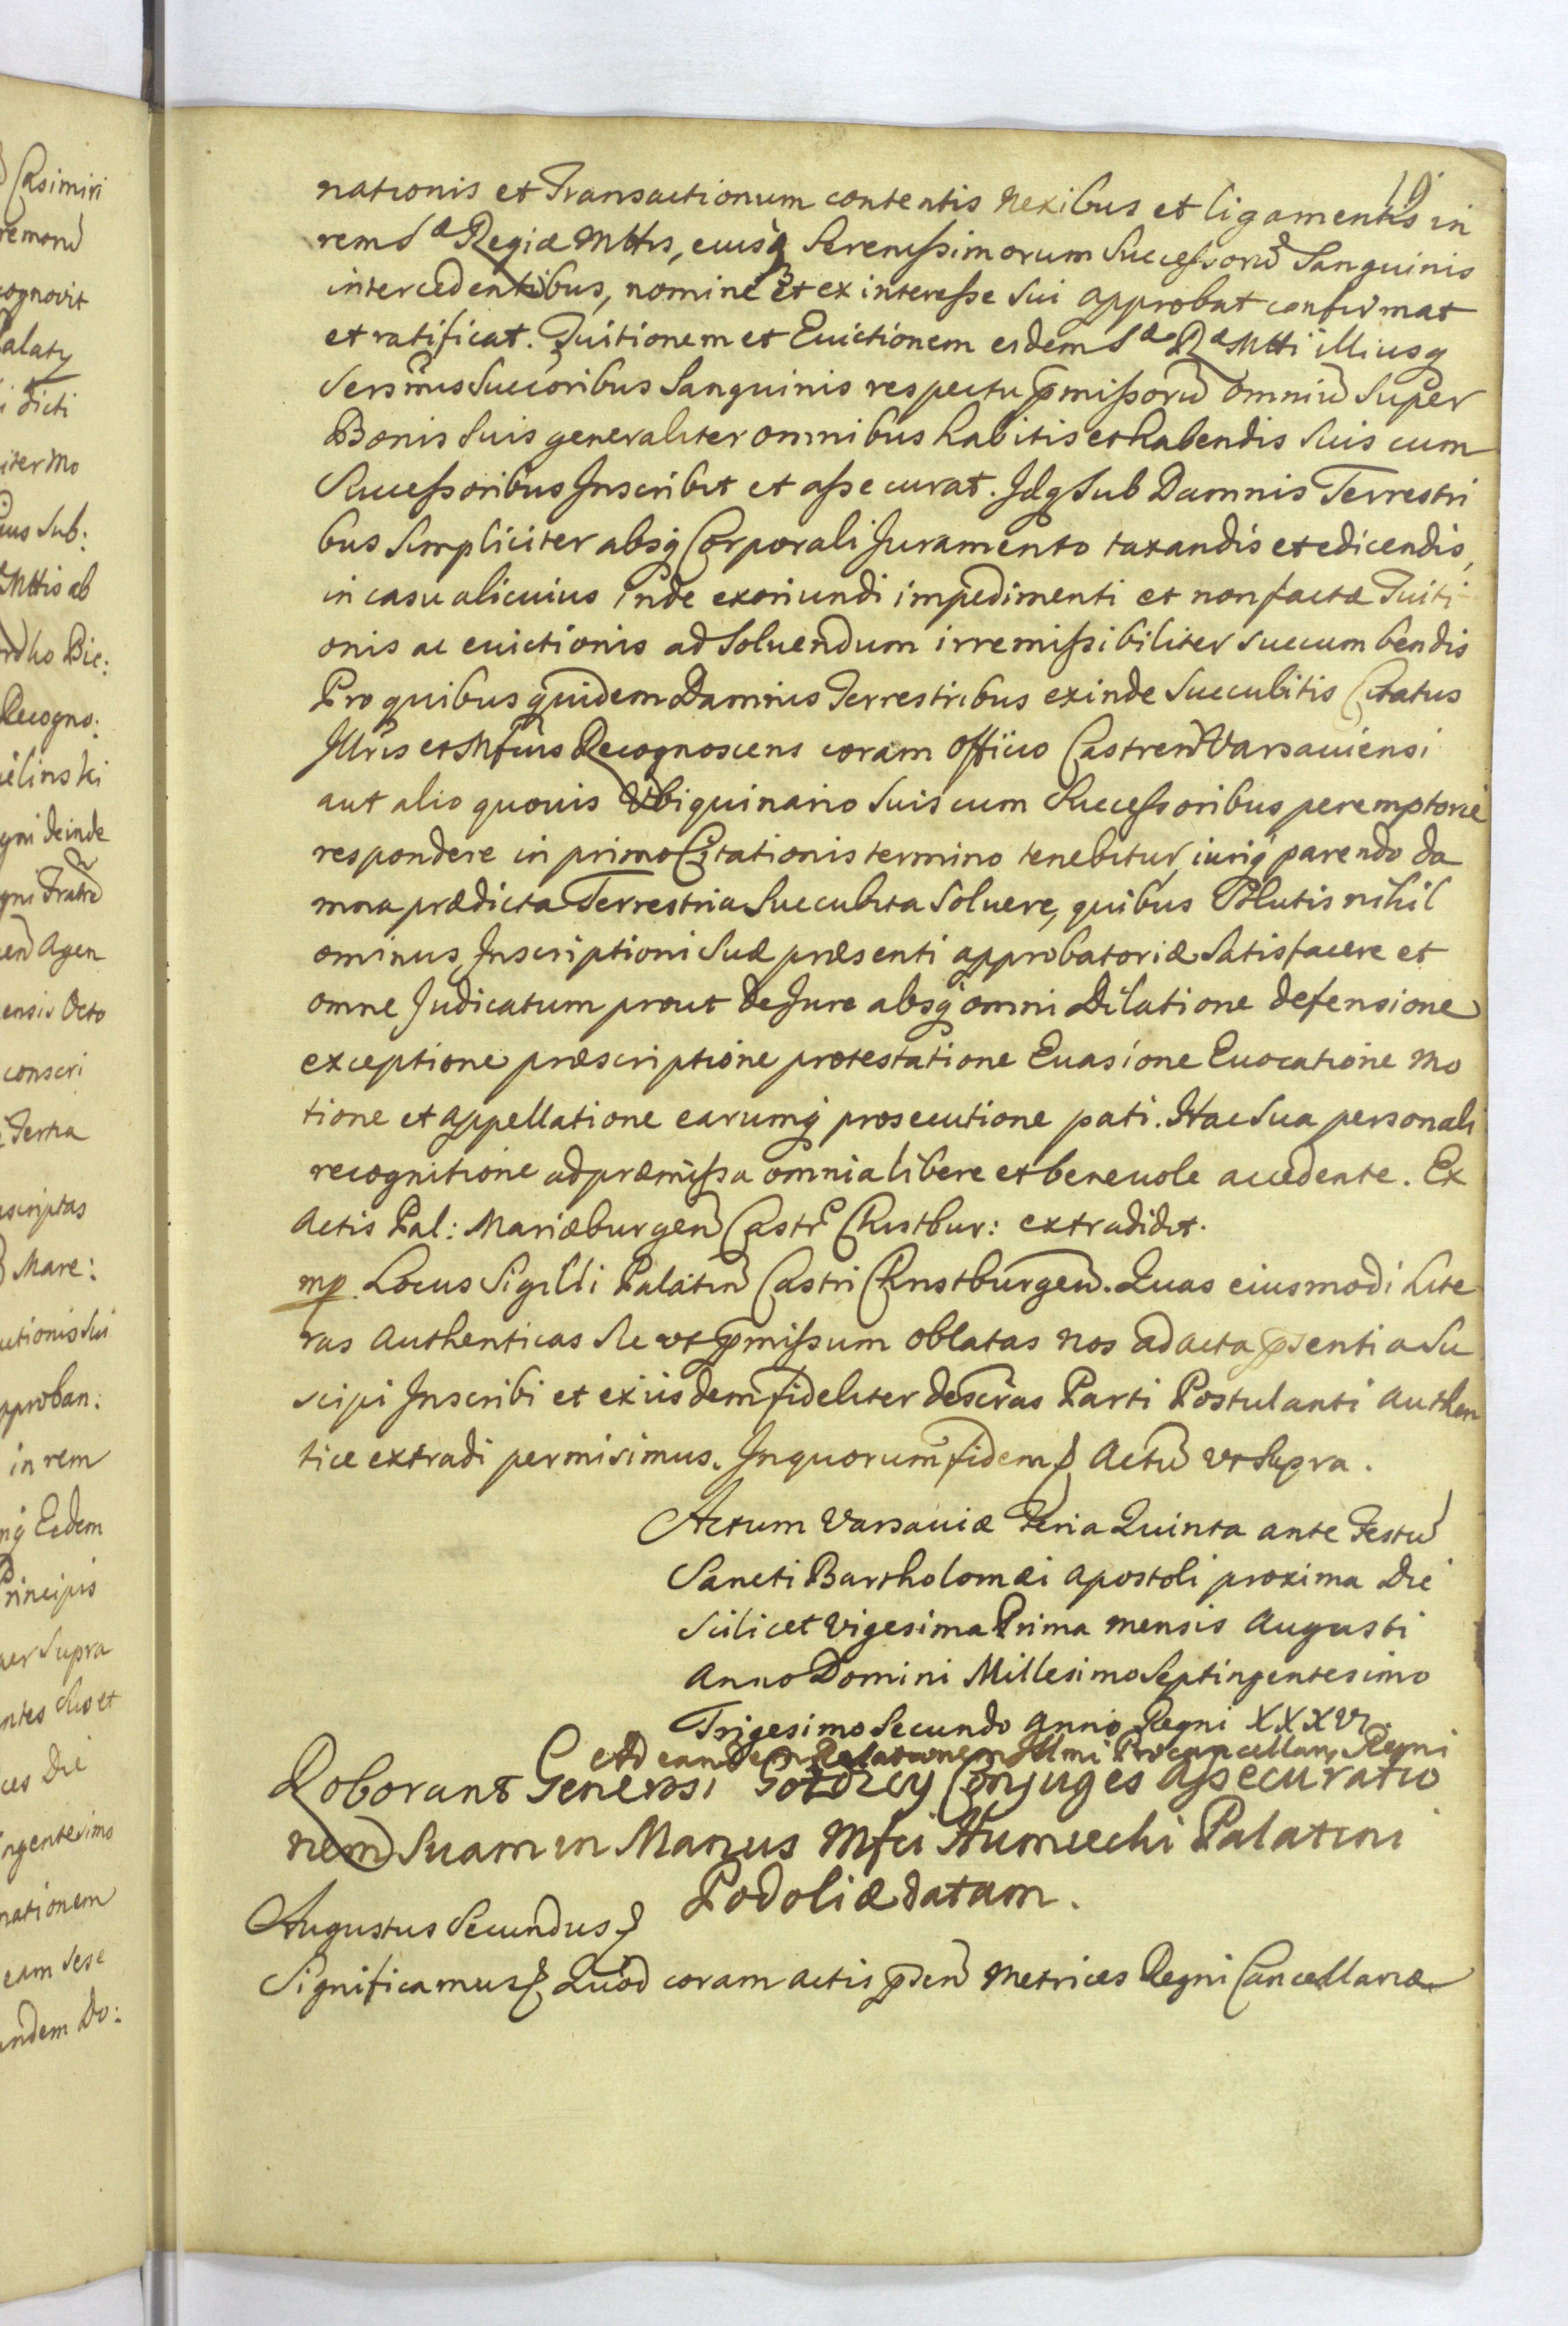 Casimiri
cognovit
Palaty
dicti
iter Mo
ius Sub:
Mttis ab
Recogno:
ielinski
gni deinde
gni Fratrū
en Agen
ensis Octo
conscri
Tertia
scriptas
Mare:
utionis sui
pproban:
in rem
mq̨ Eedem
Principis
er Supra
ntes Suo et
ces Die
ingentesimo
nationem
eam sese
undem Do:
19
nationis et Transactionum contentis Nexibus et ligamentis in
rem Sæ Regiæ Mttis, eiusq̨ Serenissimorum Successorū Sanguinis
intercedentibus, nomine et ex interesse sui approbat confirmat
et ratificat. Tuitionem et Evictionem eidem Sæ Ræ Mtti illiusq̨
Sersmis Succoribus Sanguinis respectu p̄missorū omniū Super
Bonis Suis generaliter omnibus habitis et habendis Suis cum
Successoribus Inscribit et assecurat. Idq̨ Sub Damnis Terrestri
bus Simpliciter absq̨ Corporali Juramento taxandis et edicendis,
in casu alicuius inde exoriundi impedimenti et non factæ Tuiti
onis ac evictionis ad Soluendum irremissibiliter succumbendis
Pro quibus quidem Damnis Terrestribus exinde Succubitis Citatus
Illris et Mfcus Recognoscens coram Officio Castren̄ Varsaviensi
aut alio quovis Ubiquinario Suis cum Successoribus peremptorie
respondere in primo Citationis termino tenebitur, iuriq̨ parendo da
mna prædicta Terrestria Succubita Soluere, quibus Solutis nihil
ominus, Inscriptioni Suæ præsenti approbatoriæ Satisfacere et
omne Judicatum prout de Jure absq̨ omni Dilatione defensione
exceptione præscriptione protestatione Euasione Euocatione Mo
tione et appellatione earumq̨ prosecutione pati. Hac Sua personali
recognitione ad præmissa omnia libere et beneuole accedente. Ex
Actis Pal: Mariæburgen̄ Castr̄ Christbur: extradidit.
mp Locus Sigilli Palatin̄ Castri Christburgen̄. Quas eiusmodi Lite
ras Authenticas Se ut p̄missum oblatas Nos ad acta p̄sentia Su
scipi Inscribi et ex iisdem fideliter descras Parti Postulanti Authen
tice extradi permisimus. In quorum fidem ꝭ Actū Ut Supra.
Actum Varsaviæ Feria Quinta ante Festū
Sancti Bartholomæi Apostoli proxima Die
Scilicet Vigesima Prima mensis Augusti
Anno Domini Millesimo Septingentesimo
Trigesimo Secundo Anno Regni XXXVI.
Ad eandem Relationem Illmi Procancellarÿ Regni
Roborant Generosi Conjuges assecuratio
nem Suam in Manus Mfci Humiecki Palatini
Podoliæ datam.
Augustus Secundus ꝭ
Significamus ꝭ Quod coram actis p̄sen̄ Metrices Regni Cancellariæ